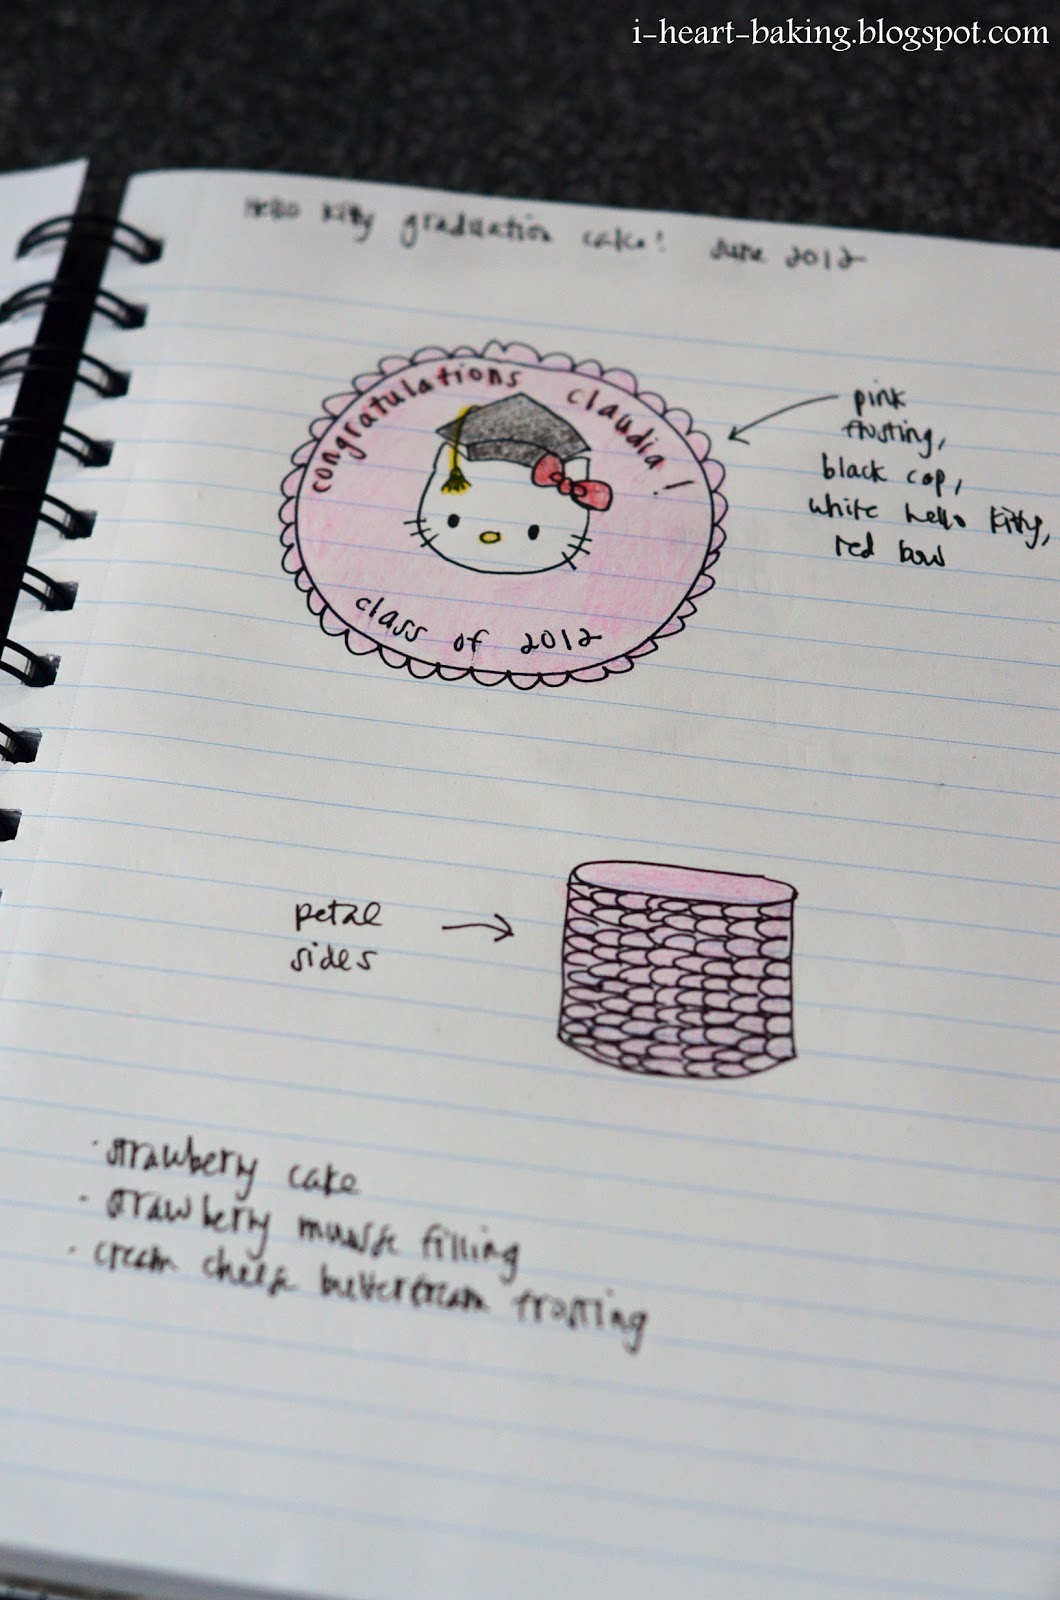 i-heart-baking.blogspot.com
Hello Kitty graduation cake! June 2012
congratulations claudia!
class of 2012
pink
frosting,
black cap,
white hello kitty,
red bow
petal
sides
· strawberry cake
· strawberry mousse filling
· cream cheese buttercream frosting